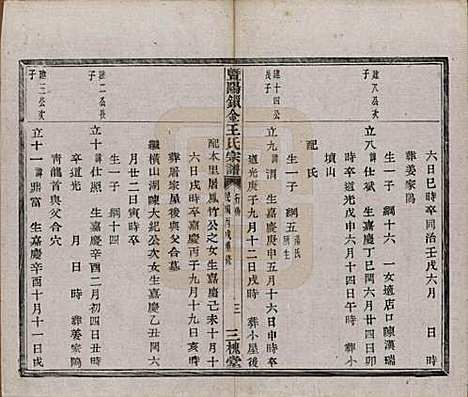 六日巳時卒同治壬戌六月　日　時
葬姜家隝
建八公次子
立八諱仕斌　生嘉慶丁巳閏六月廿四日卯
時卒道光甲午六月十四日戌時　葬小屋後
生一子　綱十四　一女適店口陳漢瑞
墳山
配氏
建十四公長子
立九諱渭　生嘉慶庚申五月十六日申時卒
道光庚子九月十二日寅時
生一子　綱五
暨陽鎖金王氏宗譜
三槐堂
配本里屠鳳竹公之女生嘉慶己未十月十
六日戌時卒嘉慶丙子九月十九日亥時
葬屠家屋後與父合墓
繼橫山湖陳大紀公次女生嘉慶乙丑閏六
月廿二日寅時卒
生一子　綱十四
建二公長子
立十諱仕照　生嘉慶辛酉二月初四日丑時
卒道光　月　日時　葬姜家隝
青龍首與父合葬
建三公次子
立十一諱鼎富　生嘉慶辛酉十月十一日戌